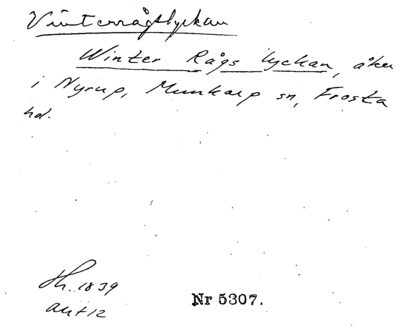 Vinterrågslyckan
Winter Rågs lyckan, åker
i Nyrup, Munkarp sn, Frosta
hd.
Sk. 1839
akt 12
Nr 5307.